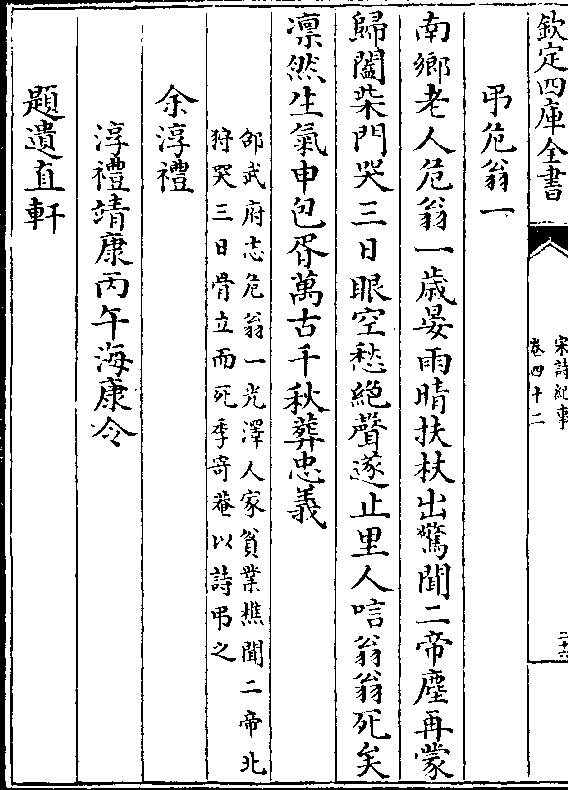 欽定四庫全書
宋詩紀事
卷四十二
二十六
弔危翁一
南鄉老人危翁一歳晏雨晴扶杖出驚聞二帝塵再蒙
歸闔柴門哭三日眼空愁絶聲遂止里人唁翁翁死矣
凛然生氣申包胥萬古千秋葬忠義
邵武府志危翁一光澤人家貧業樵聞二帝北
狩哭三日骨立而死季寄菴以詩弔之
余淳禮
淳禮靖康丙午海康令
題遺直軒